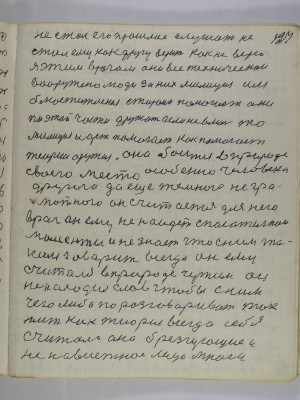 127
не стал его прошлое слушать не
стал ему как другу верит как не верю
я этим врачам они все технически
вооружено люди за них милиция или
они
по этой части другим
милиция идет помогает как помогает
теория другим. она боится в природе
своего место особенно человека
другого да еще темного негра-
мотного он считается для него
враг он ему не найдет спасательной
моменты и не знает что с ним та-
ким говорит всегда он ему
считался в природе чужим он
не находил слов чтобы с ним
чего либо поразговаривать так
как теория всегда себя
считала она брезгующие и
не навистное лицо много